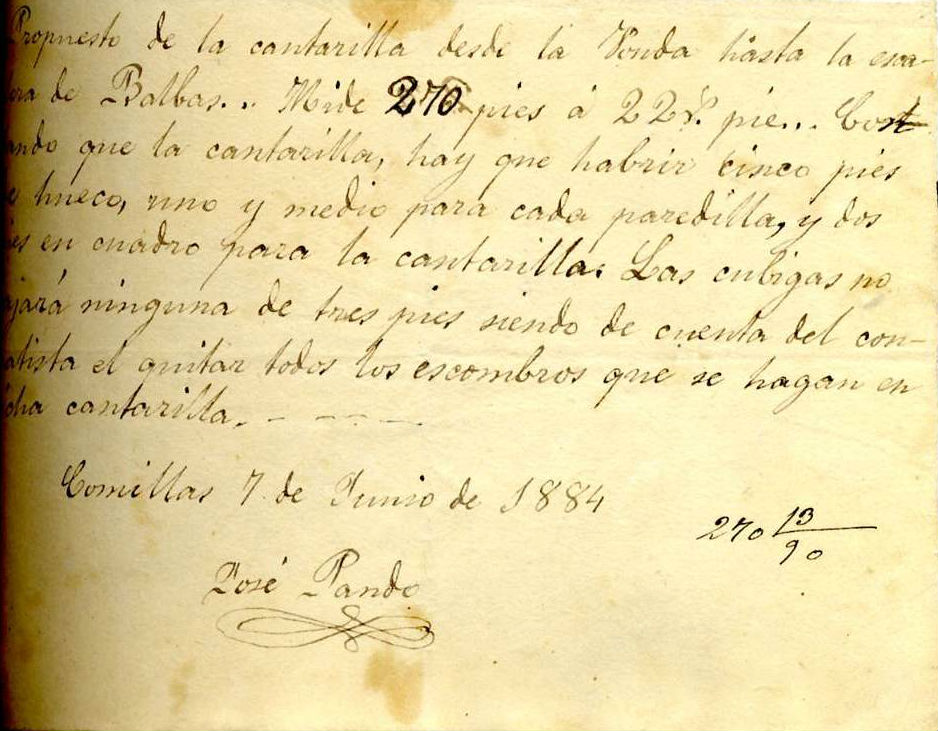 Propuesto de la cantarilla desde la Vonda hasta la esca-
lera de Balbas... Mide 270 pies á 22 r. pie... Cost
ando que la cantarilla, hay que habrir cinco pies
de hueco, uno y medio para cada paredilla, y dos
pies en cuadro para la cantarilla. Las cubigas no
bajará ninguna de tres pies siendo de cuenta del con-
tratista el quitar todos los escombros que se hagan en
dicha cantarilla. - - - -
Comillas 7 de Junio de 1884
270 13
90
José Pando